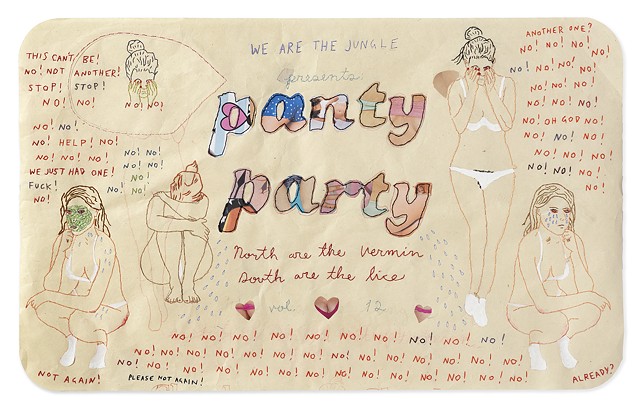 WE ARE THE JUNGLE
presents:
panty
party
North are the vermin
South are the lice
vol. 12
THIS CAN'T BE!
NO! NOT ANOTHER!
STOP! STOP!
NO! NO! NO! NO!
NO! NO!
NO! HELP! NO!
NO! NO! NO!
WE JUST HAD ONE!
FUCK!
NO!
NO! NO!
NO! NO!
NO!
NO! NO!
ANOTHER ONE?
NO! NO! NO!
NO!
NO! NO! NO!
NO! NO!
NO! NO! NO!
NO! OH GOD NO!
NO! NO! NO!
NO! NO! NO!
NO! NO!
NO!
NO! NO! NO! NO! NO! NO! NO! NO! NO! NO! NO! NO!
NO! NO! NO! NO! NO! NO! NO! NO! NO! NO! NO! NO! NO! NO!
NO! NO! NO! NO! NO! NO! NO! NO! NO! NO! NO! NO! NO! NO!
NO! NO! NO! NO! NO! NO! NO! NO! NO! NO! NO!
NOT AGAIN!
PLEASE NOT AGAIN!
ALREADY?